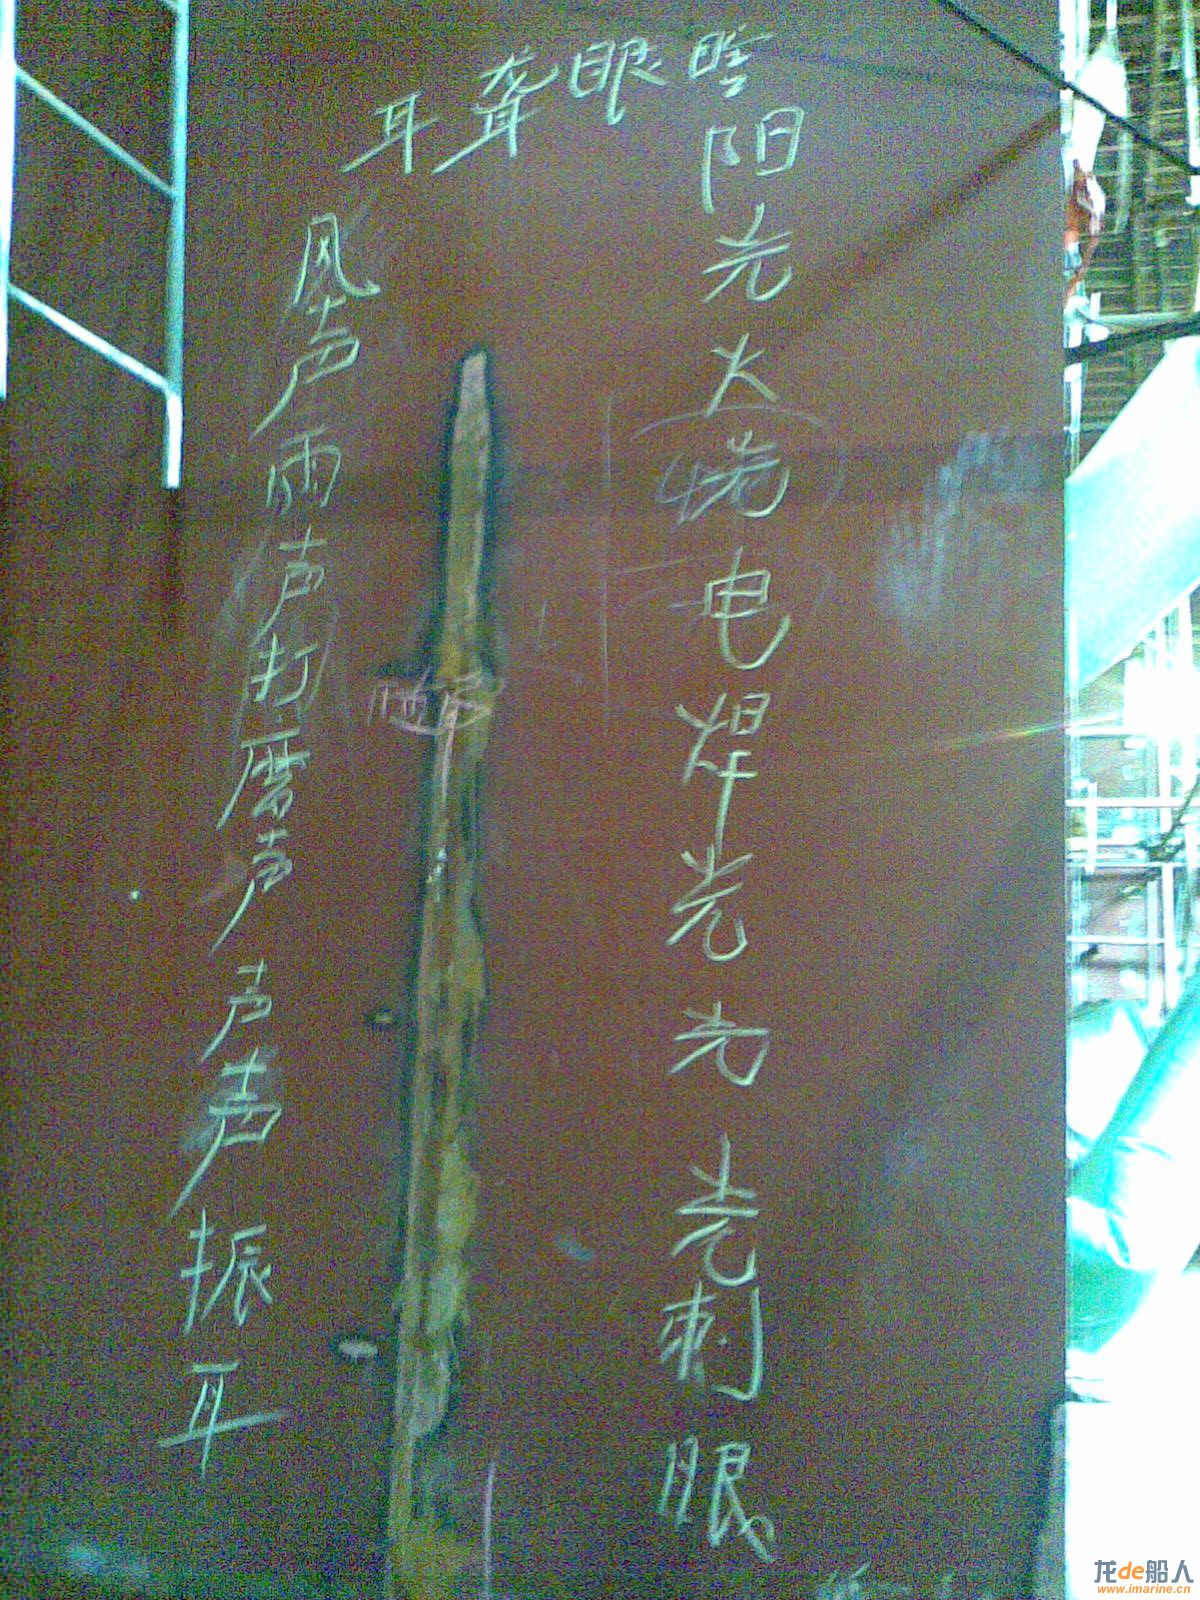 耳聋眼瞎
阳光火光电焊光光光刺眼
风声雨声打磨声声声振耳
龙de船人
www.imarine.cn